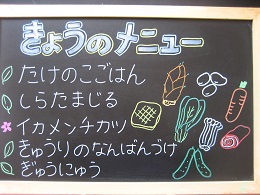 きょうのメニュー
たけのこごはん
しらたまじる
イカメンチカツ
きゅうりのなんばんづけ
ぎゅうにゅう